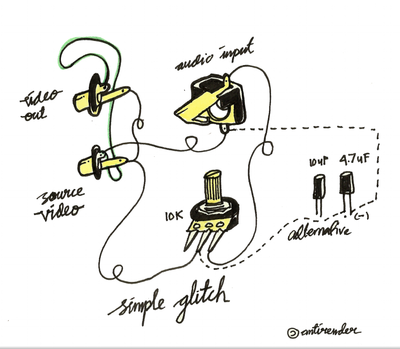 audio input
video
out
10uF 4.7uF
source
video
10K
(-)
alternative
simple glitch
©antirender